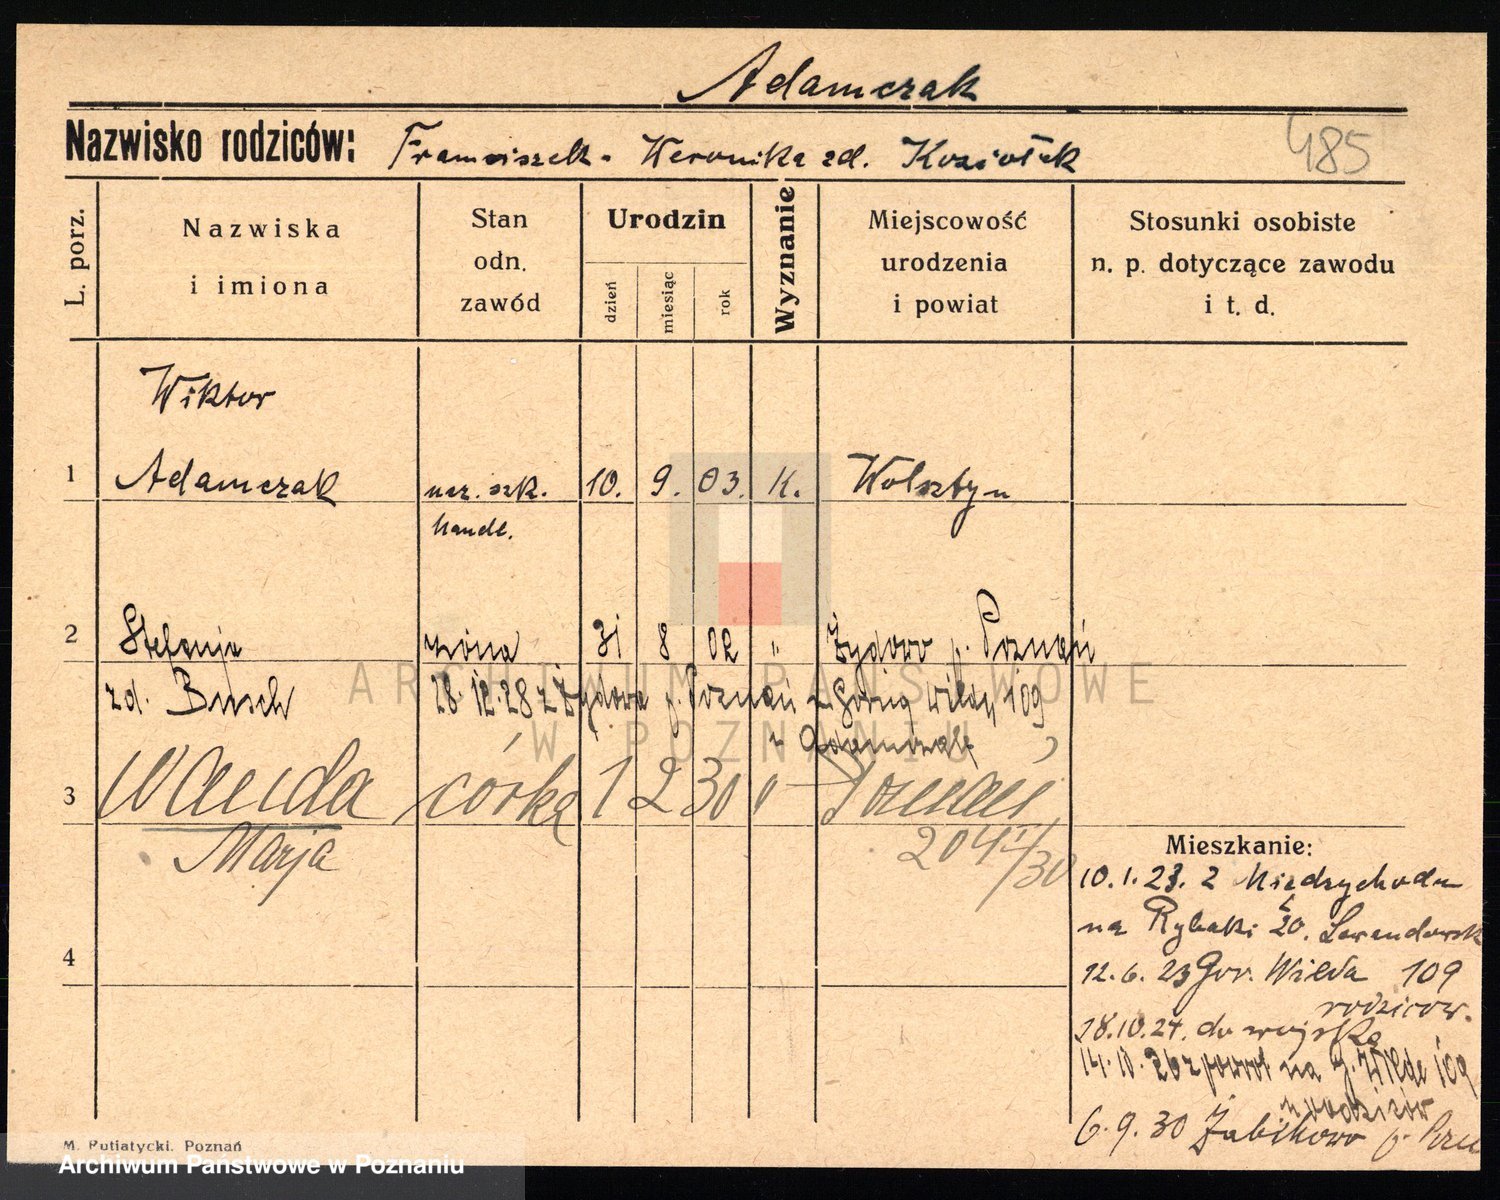 Adamczak
Nazwisko rodziców: Franciszek - Weronika zd. Koziołek
485
L. porz.
Nazwiska
i imiona
Stan
odn.
zawód
Urodzin
dzień
miesiąc
rok
Wyznanie
Miejscowość
urodzenia
i powiat
Stosunki osobiste
n. p. dotyczące zawodu
i t. d.
Wiktor
1 Adamczak ucz. szk. 10. 9. 03. K. Wolsztyn
handl.
2 Stefanja żona 31 8 02 " Żydowo p. Poznań
zd. Busch 28.12.28 z Żydowa p. Poznań Górna Wilda 109
u Adamczak
3 Wanda córka 1 2 30 " Poznań
Marja 204/30
4
Mieszkanie:
10.1.23. z Międzychodu
na Rybaki 20.
12.6.23 Gór. Wilda 109
rodziców.
28.10.24. do wojska
14.10.26 z powrot na G. Wilde 109
u rodziców
6.9.30 Żabikowo p.
M. Putiatycki. Poznań
ARCHIWUM PAŃSTWOWE
W POZNANIU
Archiwum Państwowe w Poznaniu